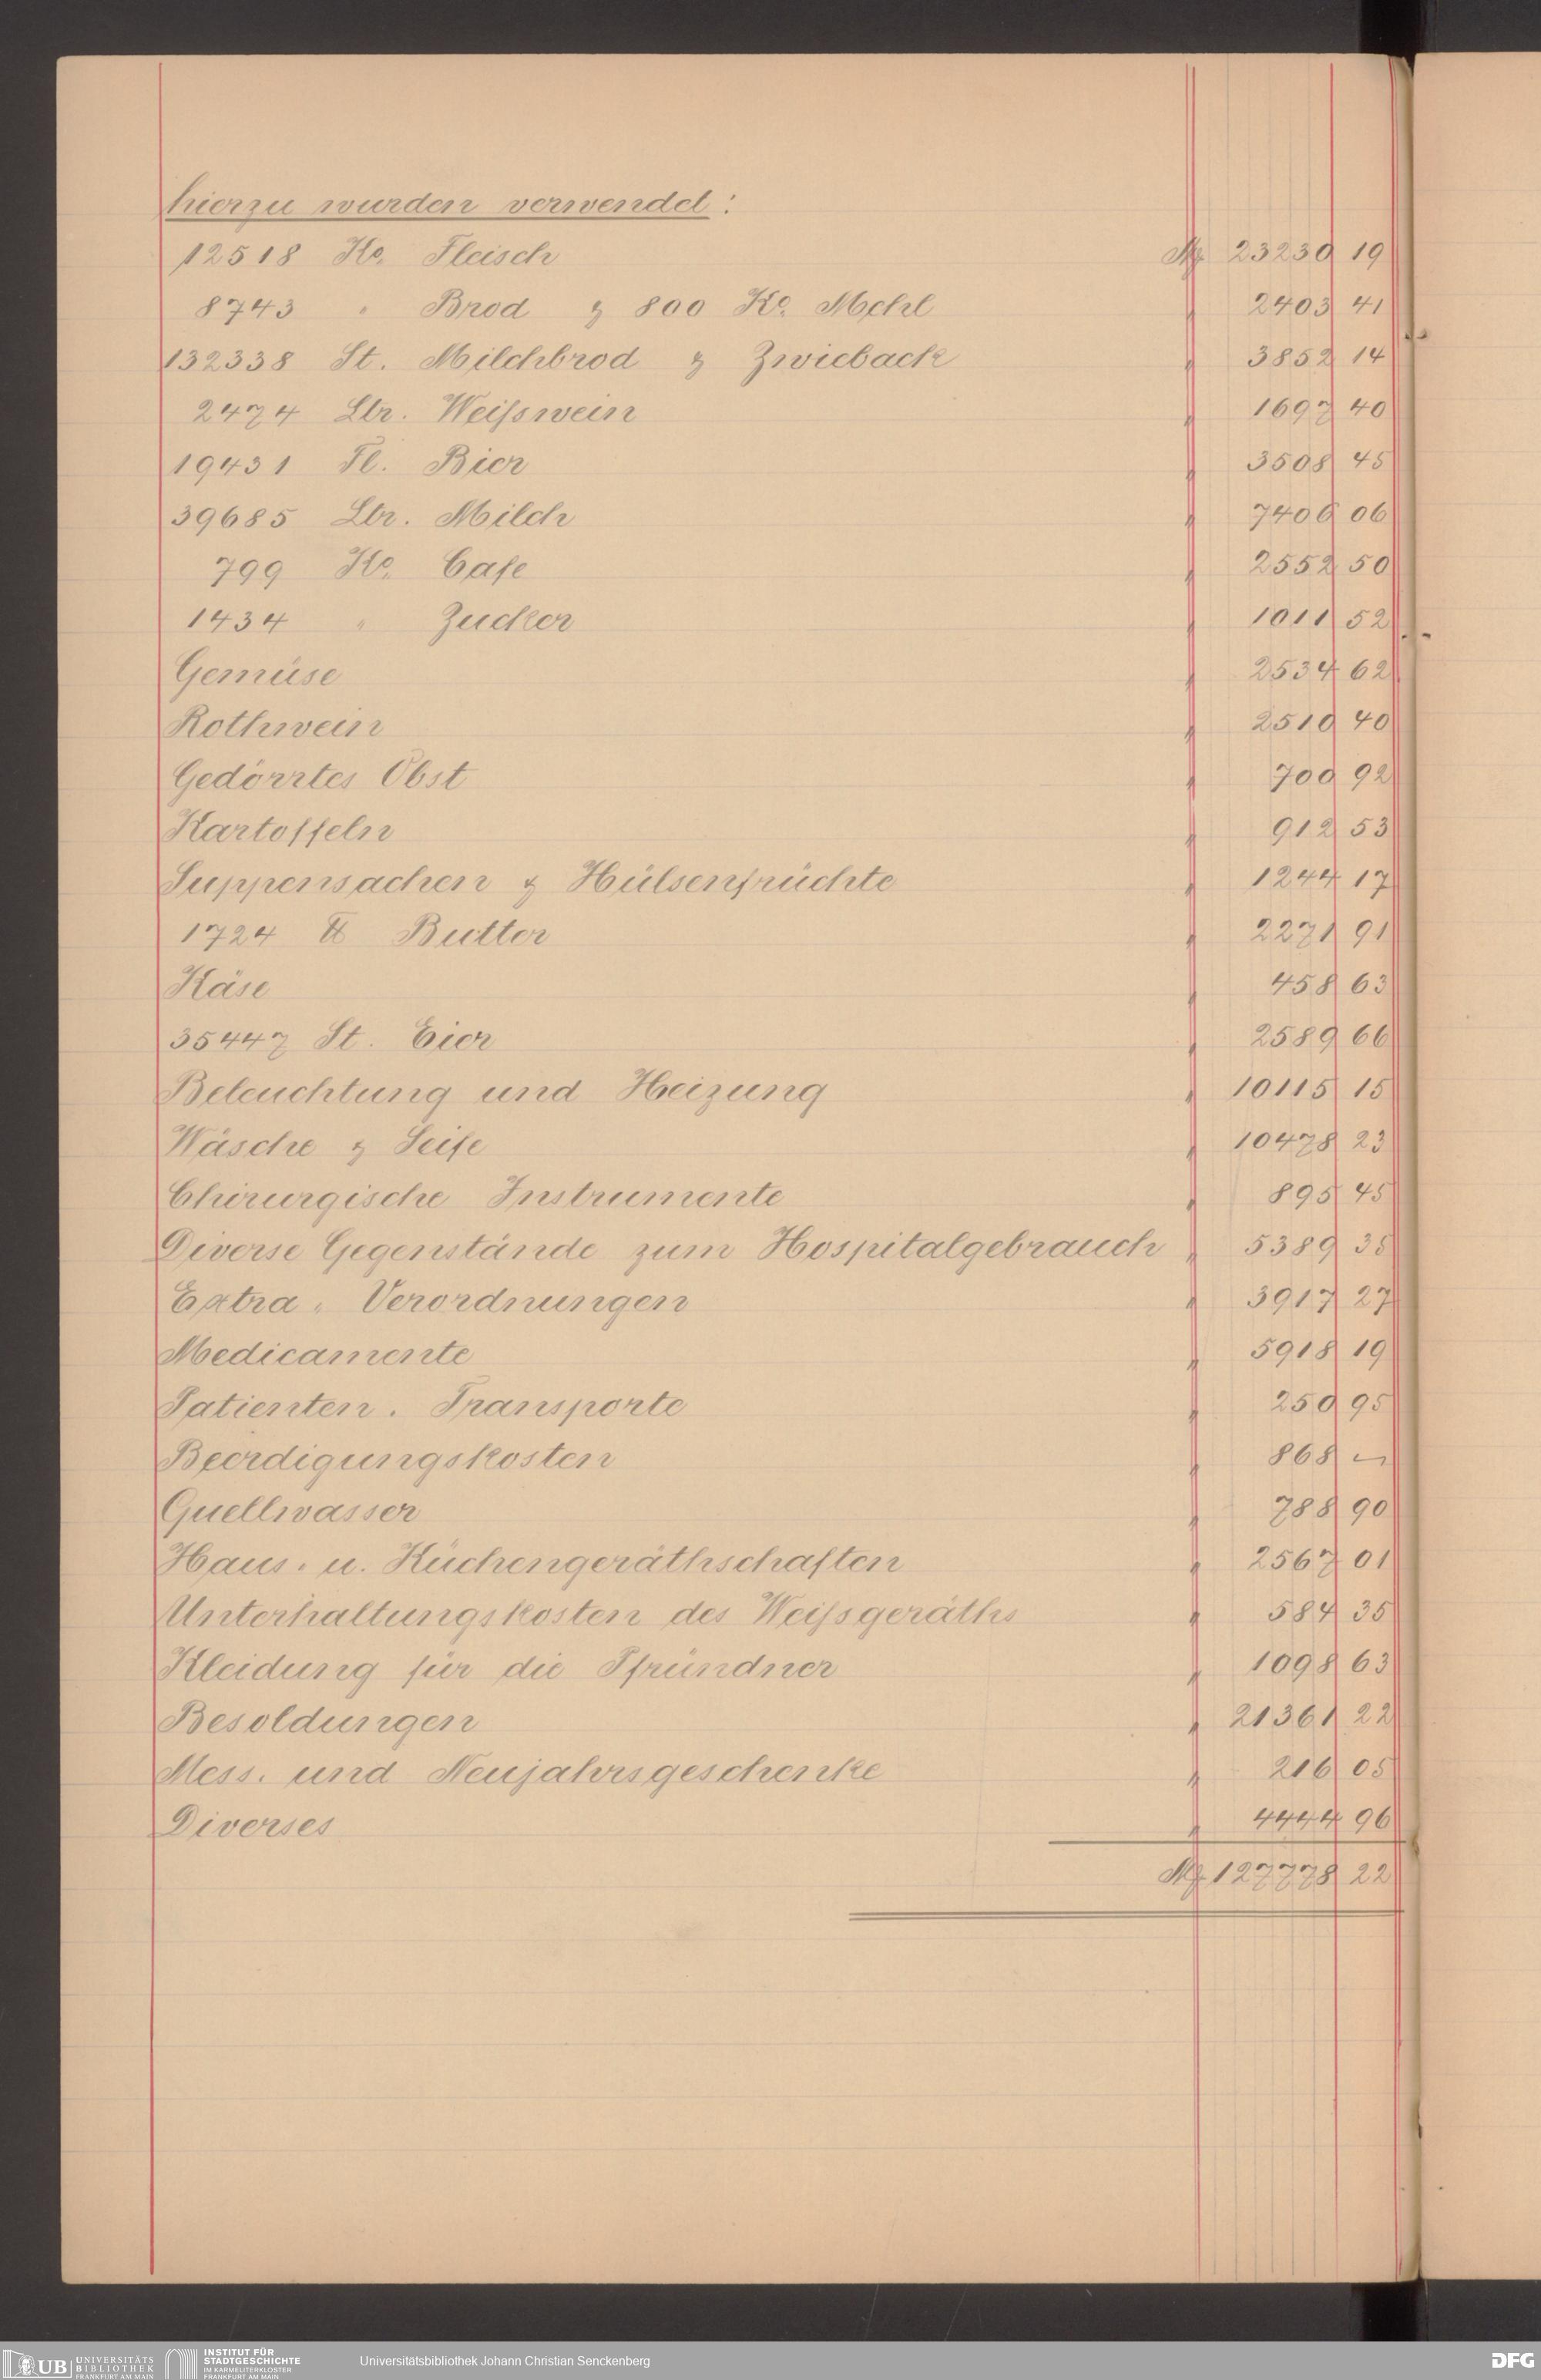 hierzu wurden verwendet:
12518 Ko. Fleisch M 23230 19
8743 " Brod & 800 Ko. Mehl " 2403 41
132338 St. Milchbrod & Zwieback " 3852 14
2474 Ltr. Weißwein " 1697 40
19431 Fl. Bier " 3508 45
39685 Ltr. Milch " 7406 06
799 Ko. Cafe " 2552 50
1434 " Zucker " 1011 52
Gemüse " 2534 62
Rothwein " 2510 40
Gedörrtes Obst " 700 92
Kartoffeln " 912 53
Suppensachen & Hülsenfrüchte " 1244 17
1724 ℔ Butter " 2271 91
Käse " 458 63
35447 St. Eier " 2589 66
Beleuchtung und Heizung " 10115 15
Wäsche & Seife " 10478 23
Chirurgische Instrumente " 895 45
Diverse Gegenstände zum Hospitalgebrauch " 5389 35
Extra-Verordnungen " 3917 27
Medicamente " 5918 19
Patienten-Transporte " 250 95
Beerdigungskosten " 868 —
Quellwasser " 788 90
Haus- u. Küchengeräthschaften " 2567 01
Unterhaltungskosten des Weißgeräths " 584 35
Kleidung für die Pfründner " 1098 63
Besoldungen " 21361 22
Mess- und Neujahrsgeschenke " 216 05
Diverses " 4444 96
M 127778 22
UB UNIVERSITÄTS BIBLIOTHEK FRANKFURT AM MAIN
INSTITUT FÜR STADTGESCHICHTE IM KARMELITERKLOSTER FRANKFURT AM MAIN
Universitätsbibliothek Johann Christian Senckenberg
DFG